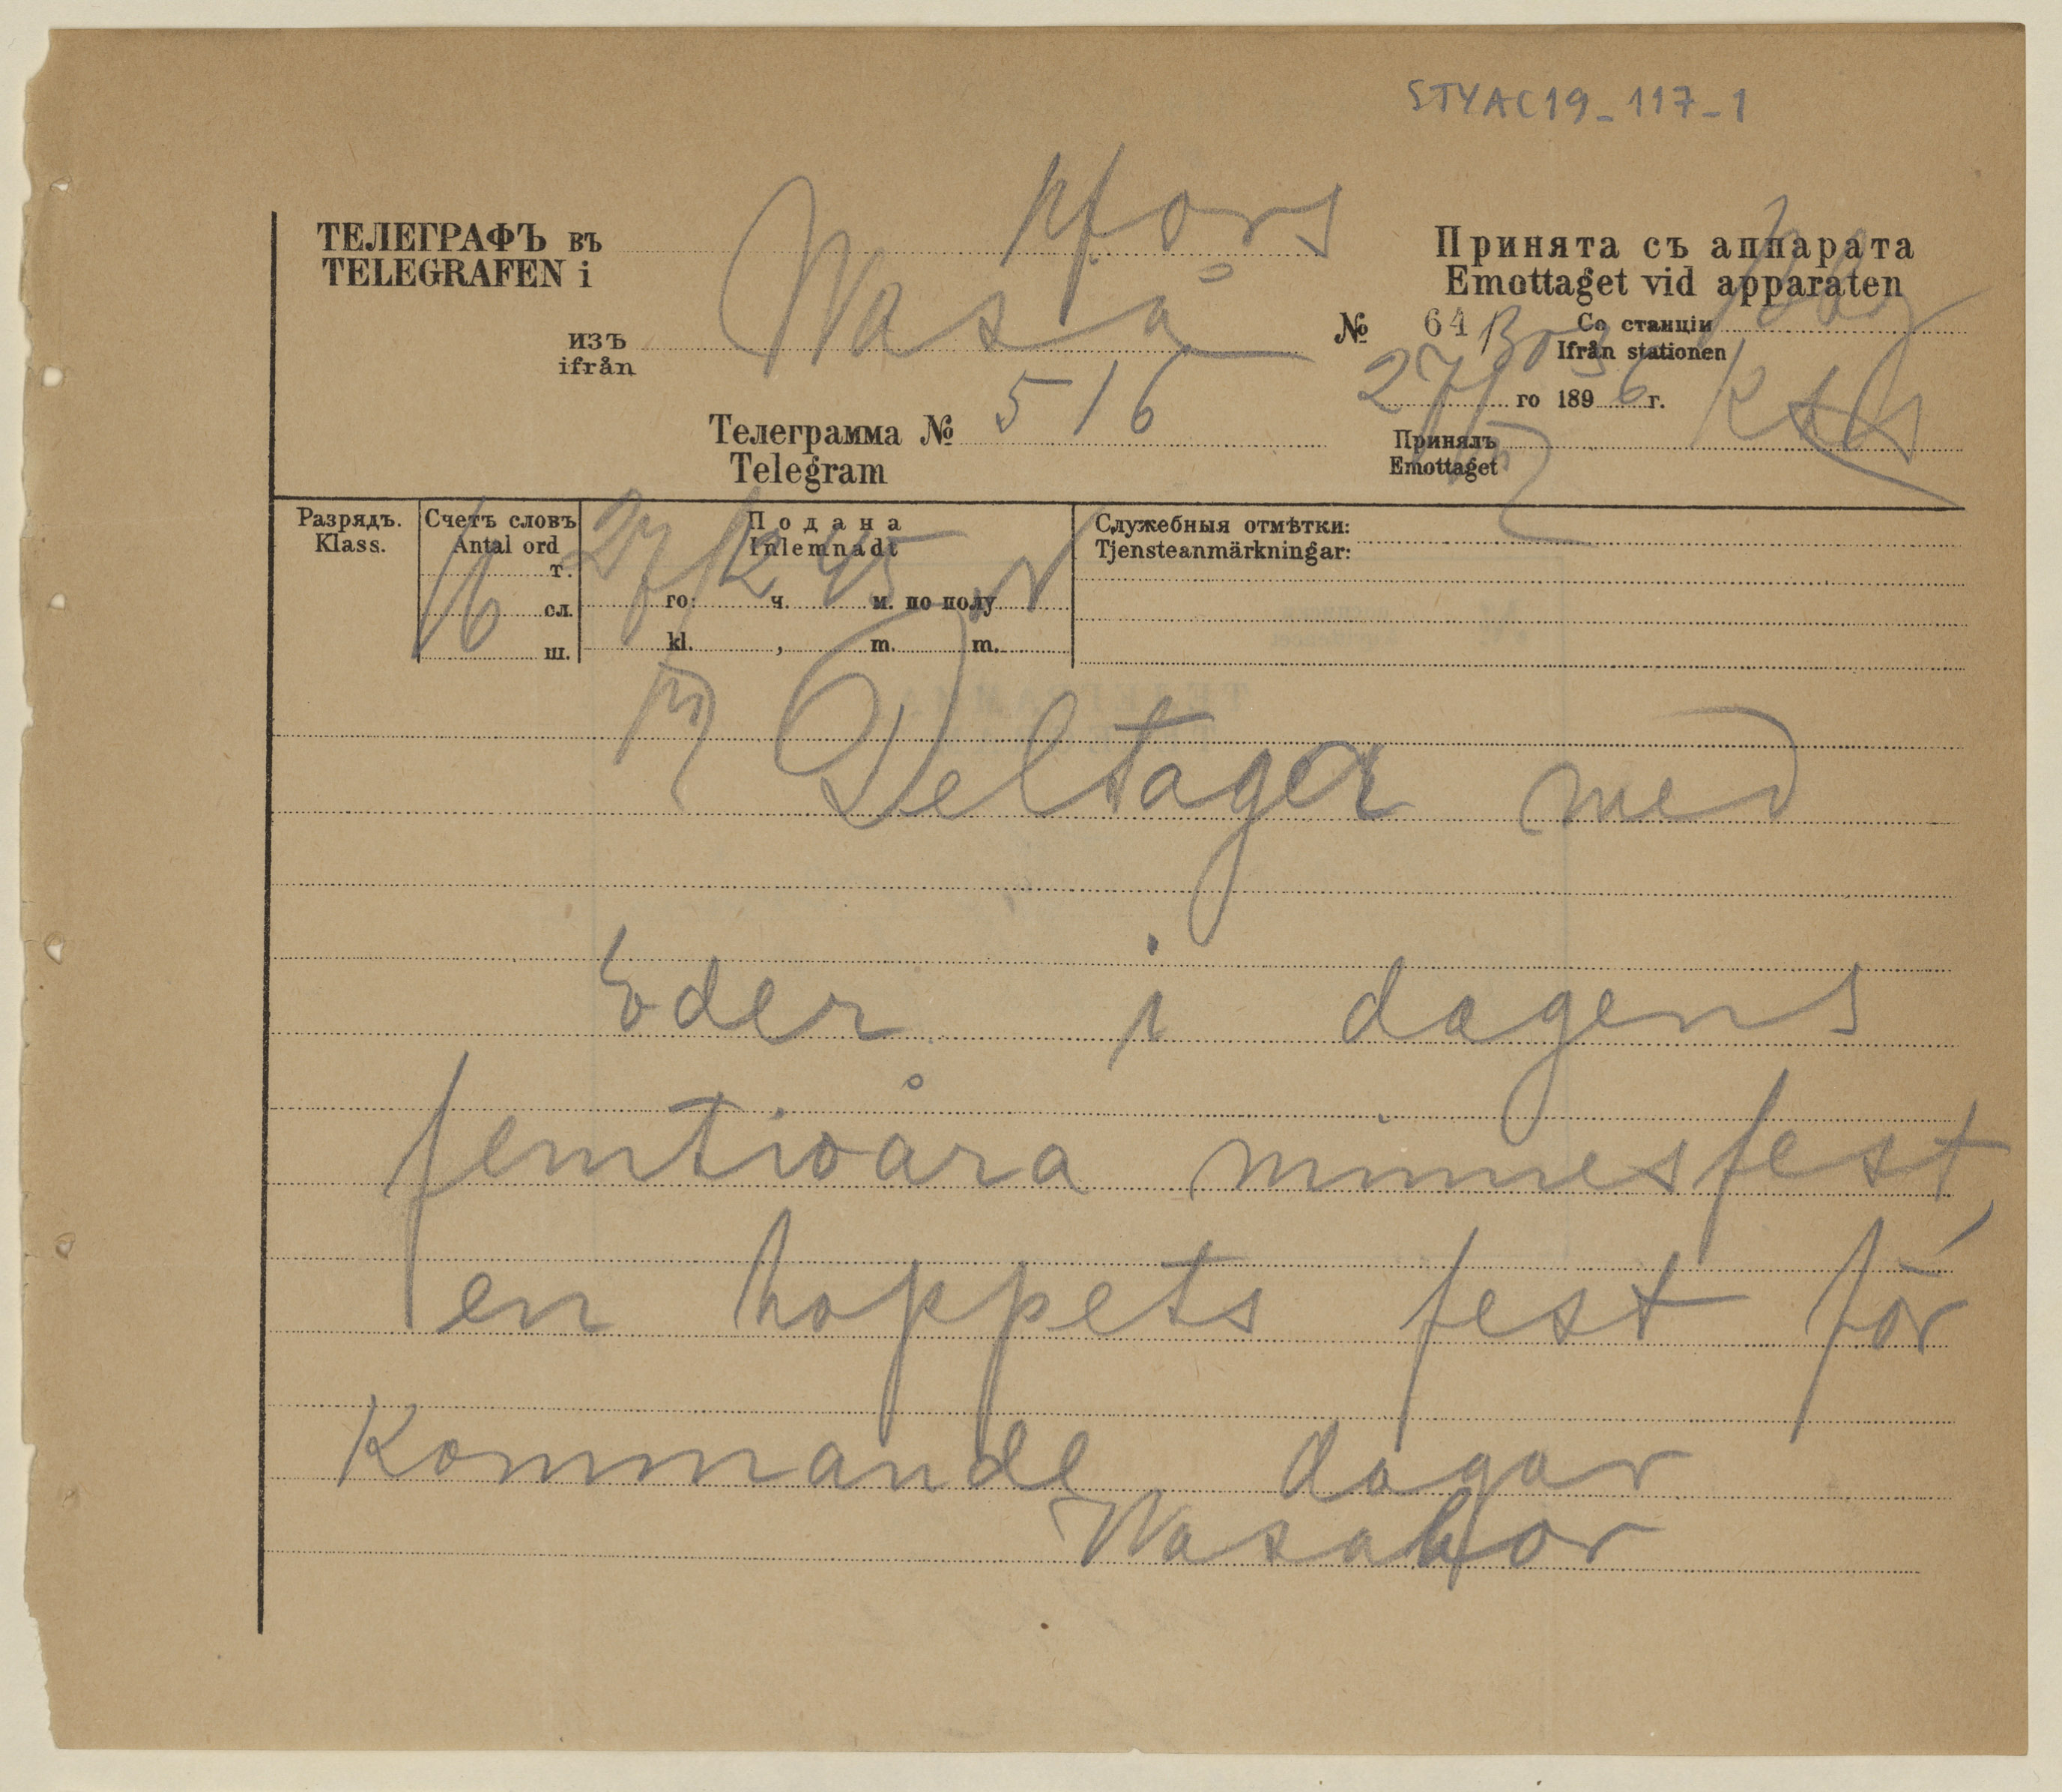 STYAC19_117_1
ТЕЛЕГРАФЪ въ Hfors
TELEGRAFEN i
изъ Wasa
ifrån
Телеграмма № 516
Telegram
Принята съ аппарата
Emottaget vid apparaten
№ 64 Со станціи
Ifrån stationen
27 го 1896 г.
Принялъ
Emottaget
Разрядъ.
Klass.
Счетъ словъ
Antal ord
16
т.
сл.
ш.
Подана
Inlemnadt
27 го: 12 ч. 45 м. по полу
kl. , m. m.
Служебныя отмѣтки:
Tjensteanmärkningar:
Deltager med
Eder i dagens
femtioåra minnesfest,
en hoppets fest för
Kommande dagar
Wasabor